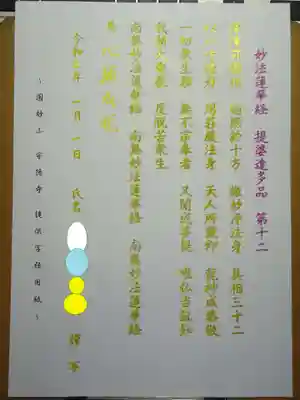 妙法蓮華経 提婆達多品 第十二
深達罪福相 徧照於十方 微妙浄法身 具相三十二
以八十種好 用荘厳法身 天人所戴仰 龍神咸恭敬
一切衆生類 無不宗奉者 又聞成菩提 唯仏当証知
我闡大乗教 度脱苦衆生
南無妙法蓮華経 南無妙法蓮華経 南無妙法蓮華経
年 一月 一日 氏名 謹写
提供写経用紙